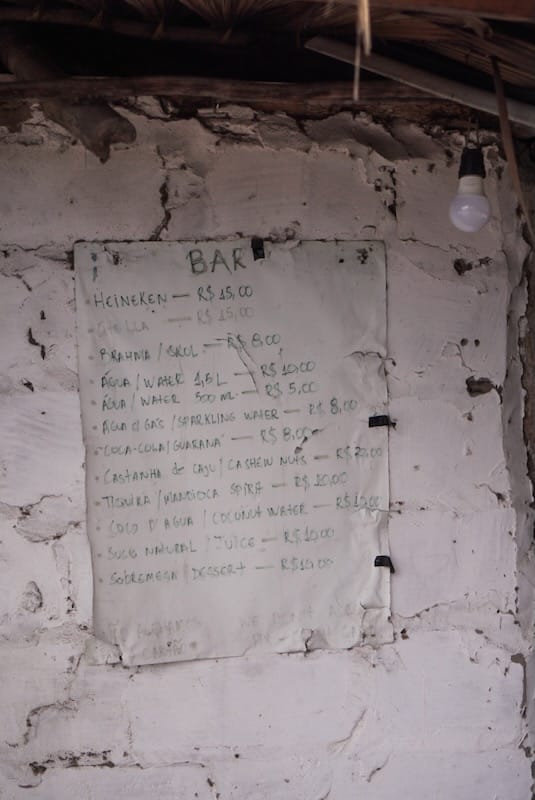 BAR
• HEINEKEN — R$ 15,00
— R$ 15,00
• BRAHMA / SKOL — R$ 8,00
• ÁGUA / WATER 1,5 L — R$ 10,00
• ÁGUA / WATER 500 ml — R$ 5,00
• ÁGUA C/ GÁS / SPARKLING WATER — R$ 8,00
• COCA-COLA / GUARANÁ — R$ 8,00
• CASTANHA de CAJU / CASHEW NUTS — R$
• TIQUIRA / MANDIOCA SPIRIT — R$ 10,00
• COCO D'AGUA / COCONUT WATER — R$ 10,00
• SUCO NATURAL / JUICE — R$ 10,00
• SOBREMESA / DESSERT — R$ 10,00
WE DON'T